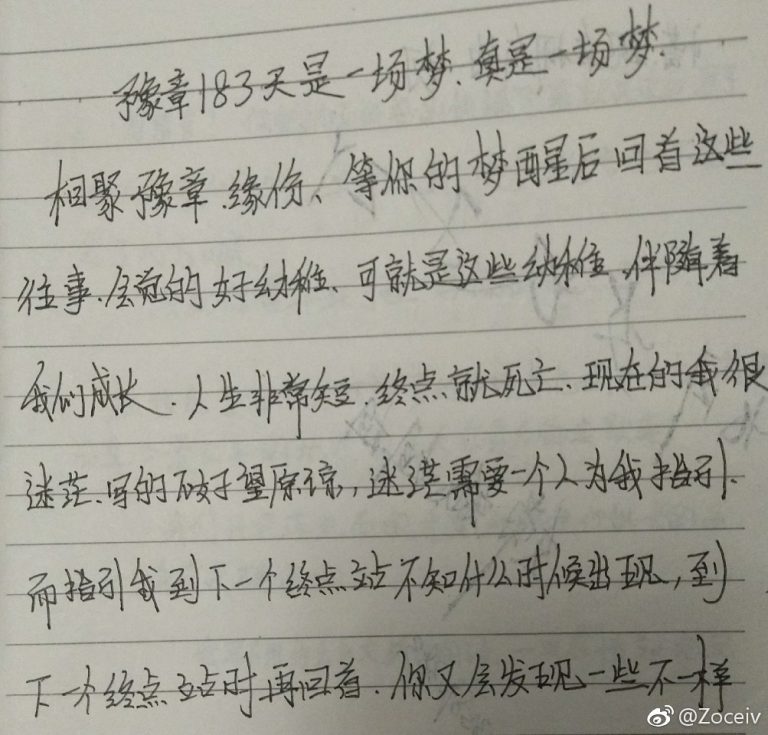 豫章183天是一场梦、真是一场梦.
相聚豫章.缘份、等你的梦醒后回首这些
往事、会觉的好幼稚、可就是这些幼稚、伴随着
我们成长.人生非常短.终点就死亡、现在的我很
迷茫、写的不好望原谅,迷茫需要一个人为我指引.
而指引我到下一个终点站不知什么时候出现,到
下一个终点站时再回首.你又会发现一些不一样
@Zoceiv